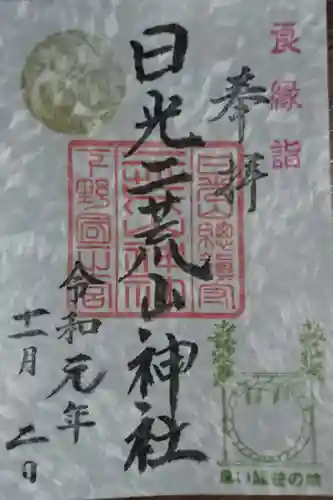 良縁詣
奉拝
日光二荒山神社
日光山總鎮守
下野国一之宮
令和元年
十一月二日
良い縁笹の輪